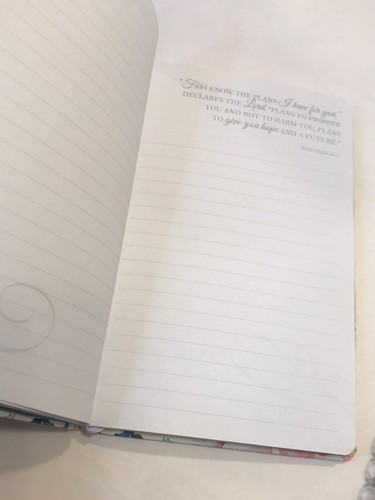 "For I KNOW THE PLANS I have for you,"
DECLARES THE Lord, "PLANS TO PROSPER
YOU AND NOT TO HARM YOU, PLANS
TO give you hope AND A FUTURE."